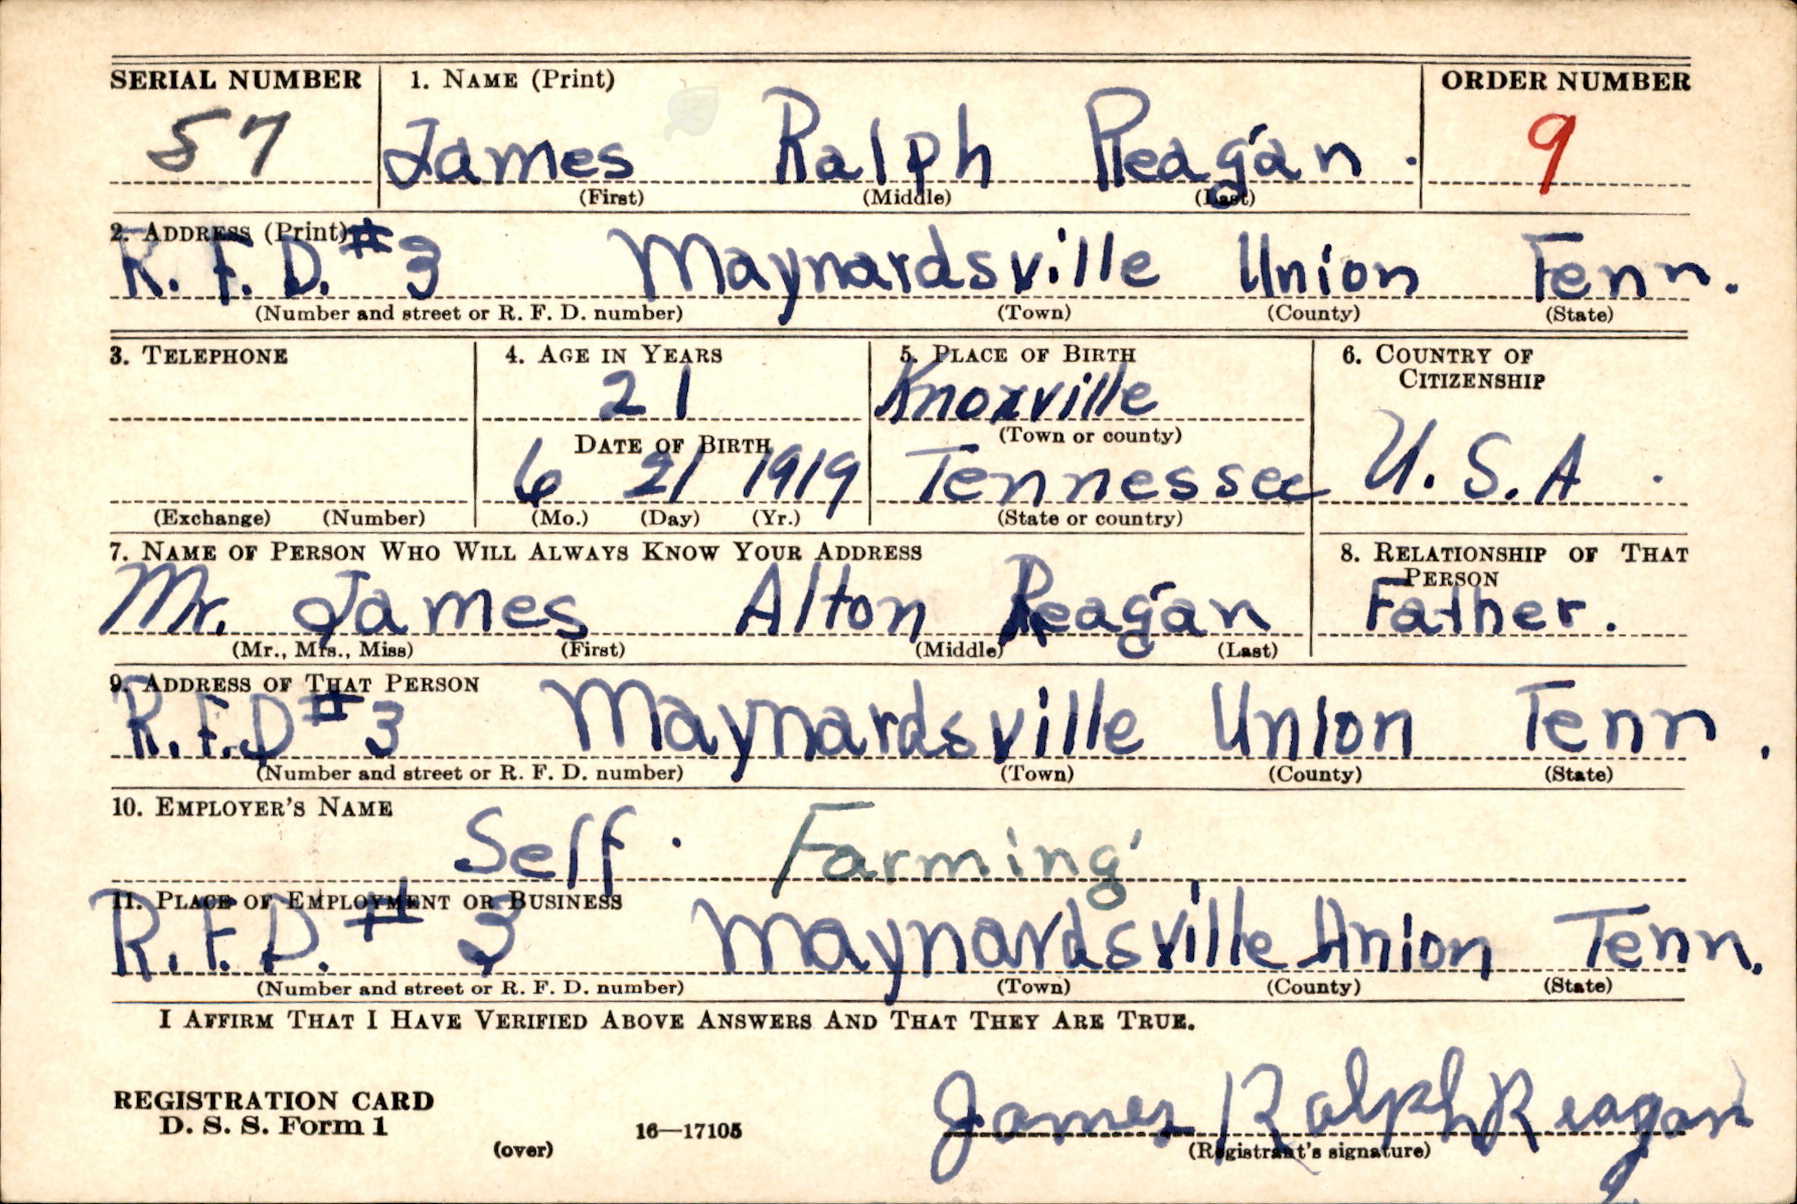 SERIAL NUMBER 1. NAME (Print) ORDER NUMBER
57 James Ralph Reagan. 9
(First) (Middle) (Last)
2. ADDRESS (Print)
R. F. D. #3 Maynardsville Union Tenn.
(Number and street or R. F. D. number) (Town) (County) (State)
3. TELEPHONE 4. AGE IN YEARS 5. PLACE OF BIRTH 6. COUNTRY OF
CITIZENSHIP
21 Knoxville
DATE OF BIRTH (Town or county)
6 21 1919 Tennessee U.S.A.
(Exchange) (Number) (Mo.) (Day) (Yr.) (State or country)
7. NAME OF PERSON WHO WILL ALWAYS KNOW YOUR ADDRESS 8. RELATIONSHIP OF THAT
PERSON
Mr. James Alton Reagan Father.
(Mr., Mrs., Miss) (First) (Middle) (Last)
9. ADDRESS OF THAT PERSON
R.F.D #3 Maynardsville Union Tenn.
(Number and street or R. F. D. number) (Town) (County) (State)
10. EMPLOYER'S NAME
Self. Farming
11. PLACE OF EMPLOYMENT OR BUSINESS
R.F.D. #3 Maynardsville Union Tenn.
(Number and street or R. F. D. number) (Town) (County) (State)
I AFFIRM THAT I HAVE VERIFIED ABOVE ANSWERS AND THAT THEY ARE TRUE.
REGISTRATION CARD
D. S. S. Form 1
(over) 16—17105
James Ralph Reagan
(Registrant's signature)